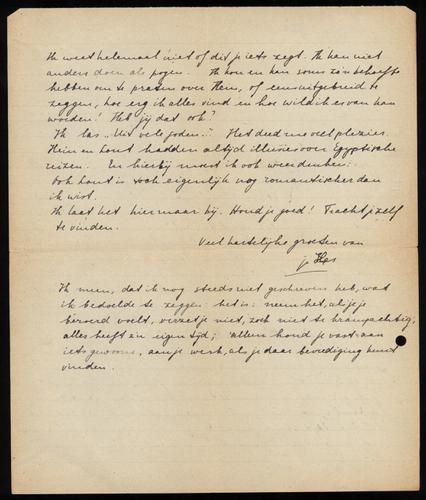 Ik weet helemaal niet of dit je iets zegt. Ik kan niet
anders doen als pogen. Ik kan soms zo'n behoefte
hebben om te praten over Hem, of eens uitgebreid te
zeggen, hoe erg ik alles vind en hoe wild ik er van kan
worden! Heb jij dat ook?
Ik las "Uit vele joden..." Het deed me veel plezier.
Hein en hadden altijd illusies over Egyptische
reizen. En hierbij moest ik ook weer denken:
Ook is toch eigenlijk nog romantischer dan
ik wist.
Ik laat het hier maar bij. Houd je goed! Tracht jezelf
te vinden.
Veel hartelijke groeten van
je
Ik meen, dat ik nog steeds niet geschreven heb, wat
ik bedoelde te zeggen: het is: neem het, als je je
beroerd voelt, verzet je niet, zoek niet te krampachtig,
alles heeft z'n eigen tijd; alleen houd je vast aan
iets gewoons, aan je werk, als je daar bevrediging kunt
vinden.